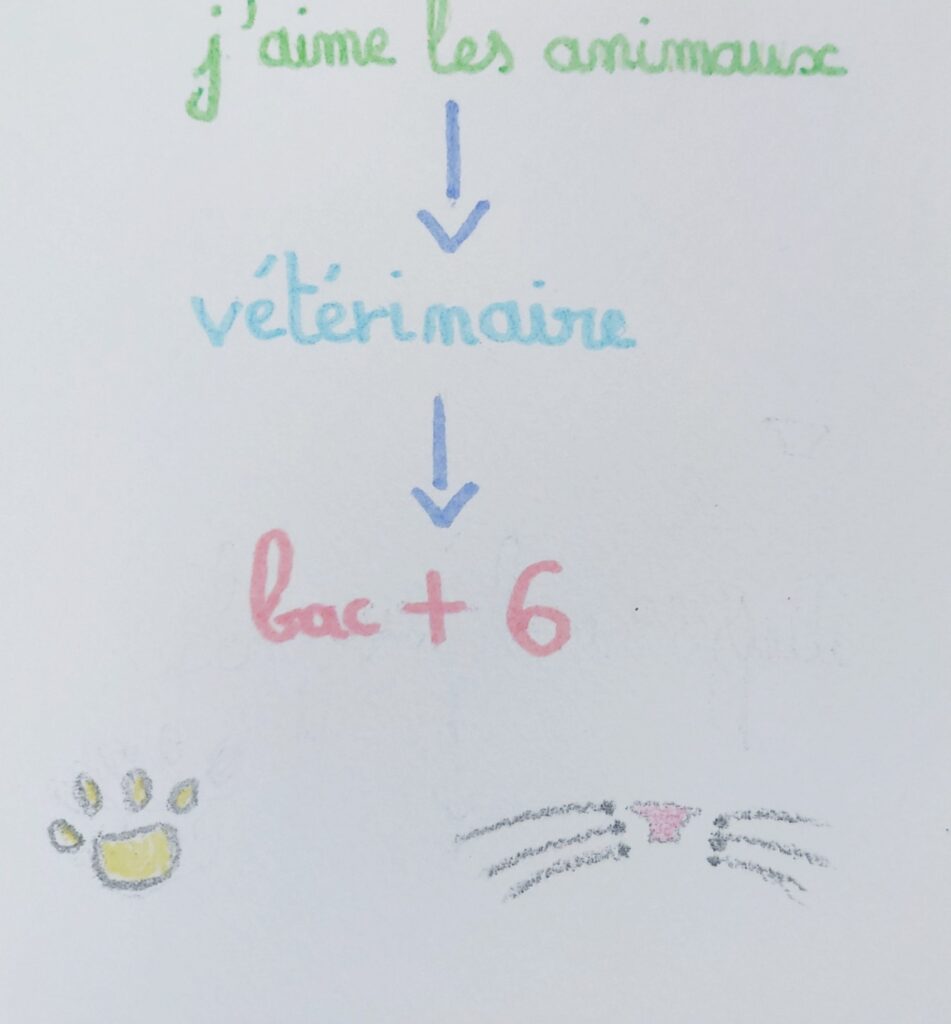 j'aime les animaux
vétérinaire
bac + 6